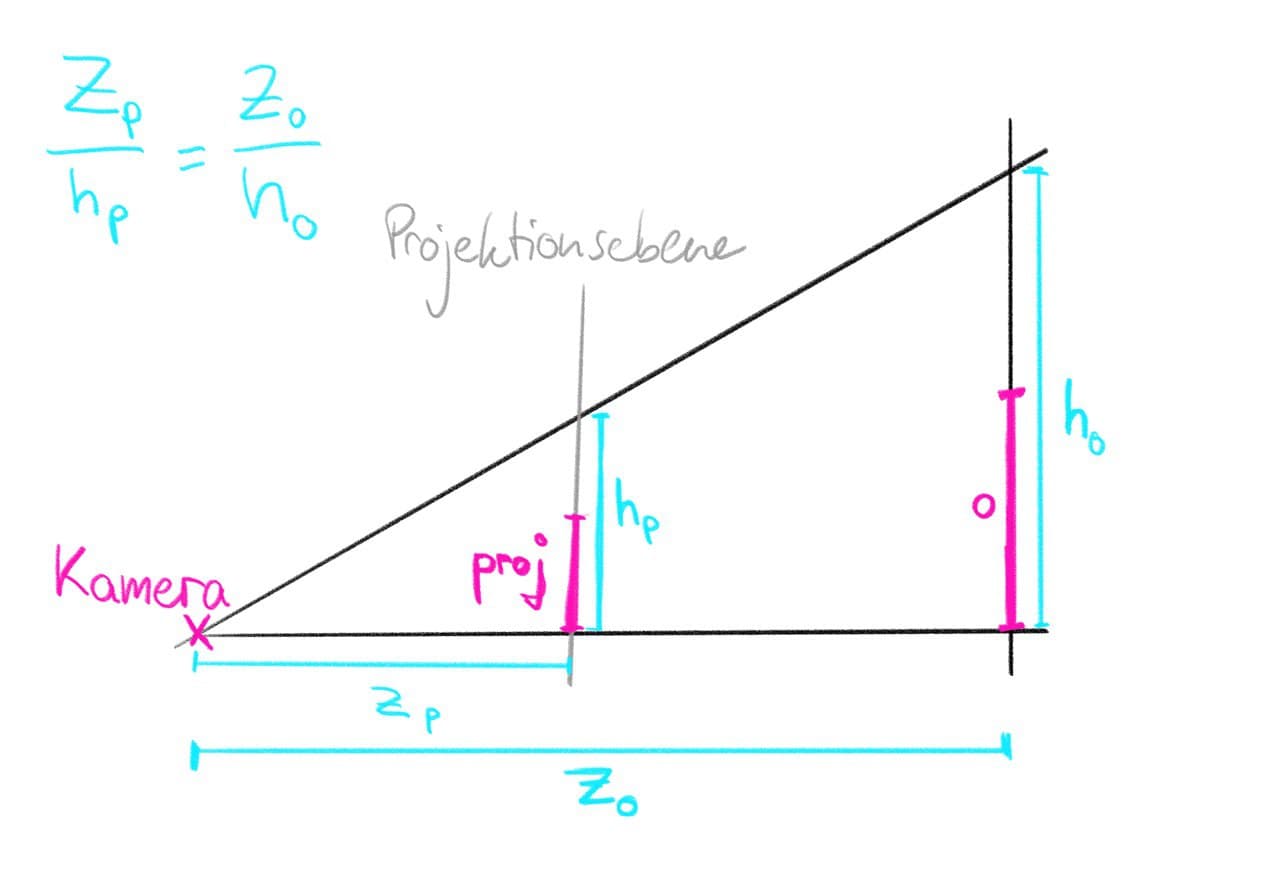 Zp / hp = Zo / ho
Projektionsebene
ho
hp
o
proj
Kamera
zp
Zo